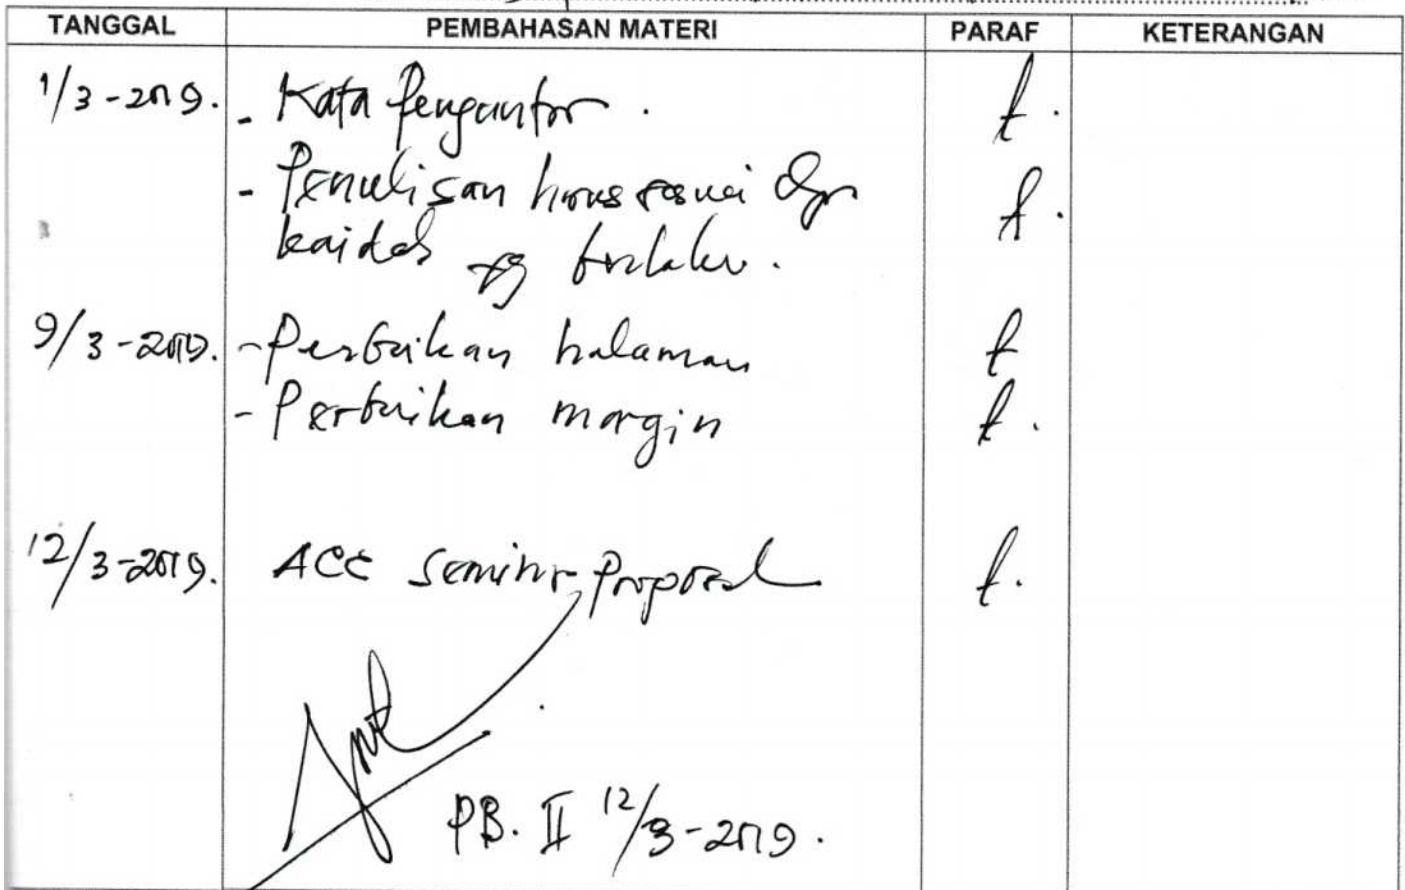 TANGGAL PEMBAHASAN MATERI PARAF KETERANGAN
1/3-2019. - Kata Pengantar.
- Penulisan harus sesuai dgn
kaidah yg berlaku.
9/3-2019. - Perbaikan halaman
- Perbaikan margin
12/3-2019. ACC Seminar Proposal
PB. II 12/3-2019.